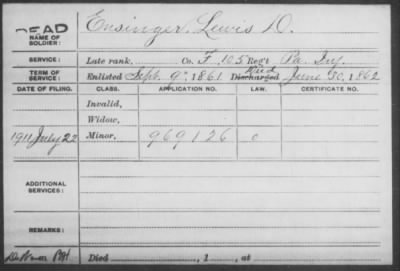 DEAD Ensinger, Lewis D.
NAME OF SOLDIER:
SERVICE: Late rank, Co. F, 105 Reg't Pa. Inf.
TERM OF SERVICE: Enlisted Sept. 9", 1861 Discharged Died June 30, 1862
DATE OF FILING. CLASS. APPLICATION NO. LAW. CERTIFICATE NO.
Invalid,
Widow,
1911 July 22 Minor, 969126
ADDITIONAL SERVICES:
REMARKS:
Died , 1 , at